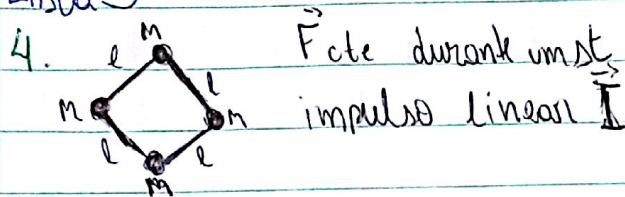 4.
M
l
l
M
M
l
l
M
F⃗ cte durante um st,
impulso linear I⃗